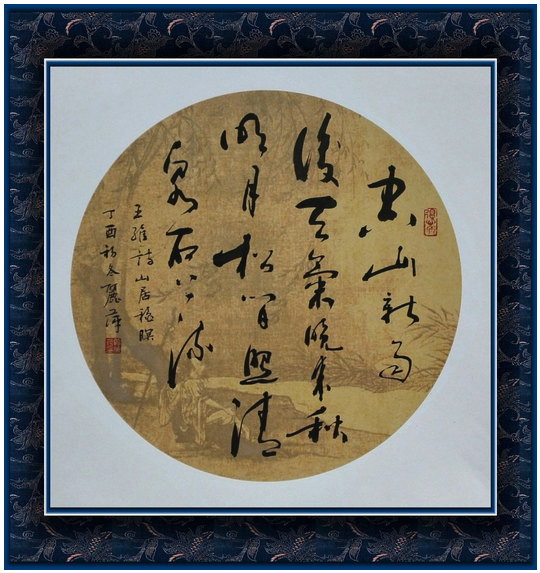 空山新雨
後天氣晚来秋
明月松間照清
泉石上流
王維詩山居秋暝
丁酉初冬麗萍